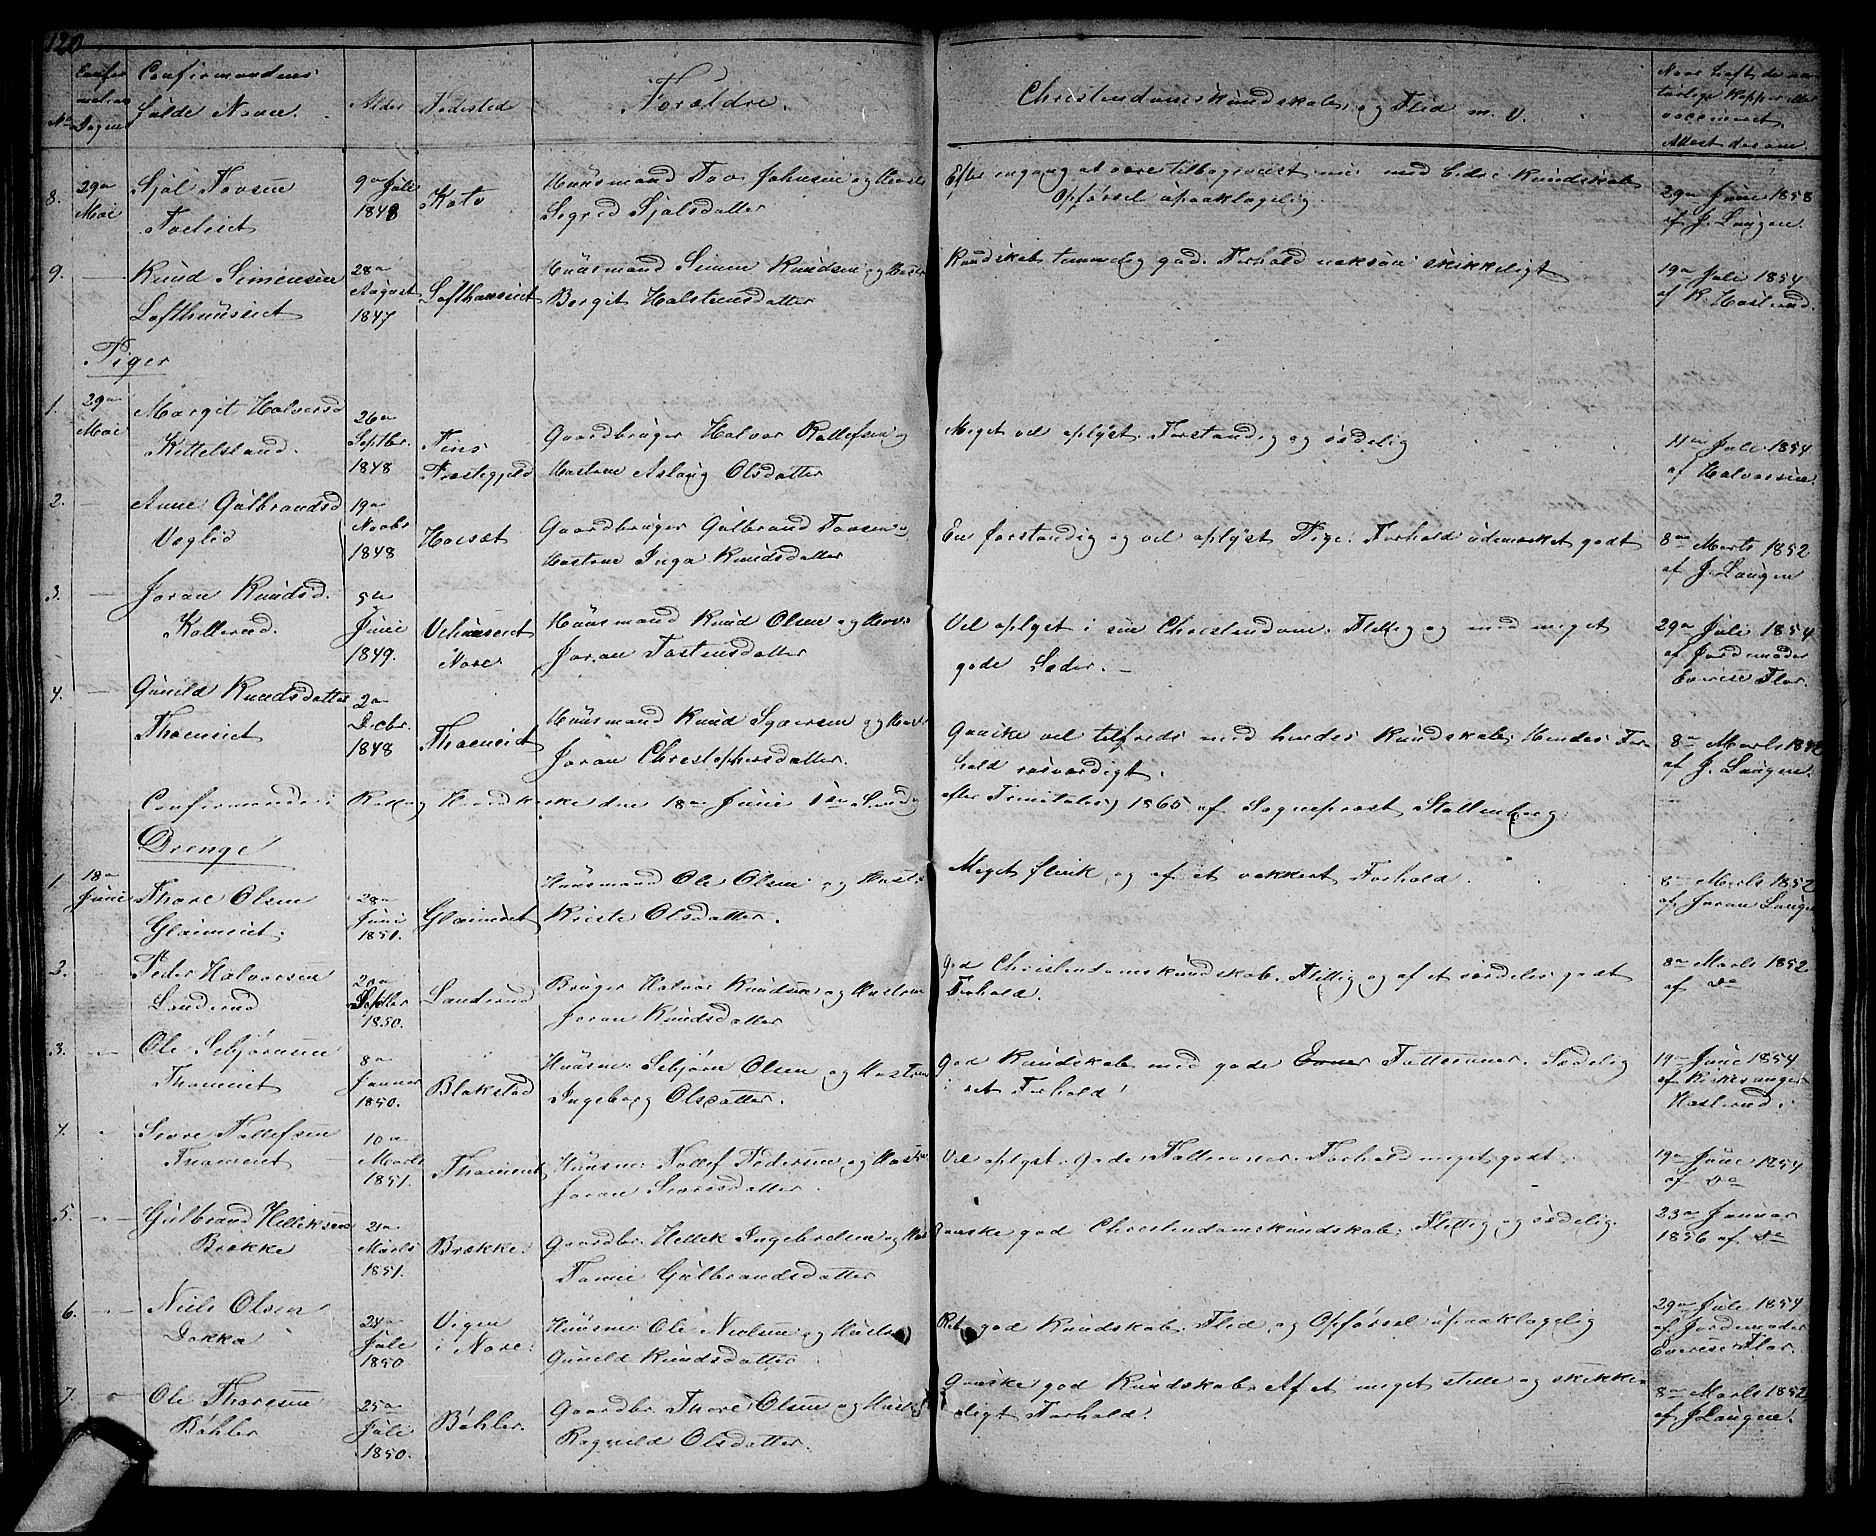 120
Confirmandens
Fulde Navn.
Alder
Fødested
Forældre.
Christendomskundskab, og Flid m. v.
Naar havt de na-
turlige Kopper eller
vaccineret.
Attest derom.
8. 29de Mai
Sjøl Tovsen
9de Juli 1848
Huusmand Tov Johnsen og
Sigrid Sjølsdatter
Opførsel upaaklagelig.
29de Juni 1858
af J. Laugen.
9. Knud Simensen
Lofthuuseiet
28de August 1847
Lofthuuseiet
Huusmand Simen Knudsen og
Birgit Holstensdatter
Kundskab temmelig god. Forhold skikkeligt
19de Juli 1854
af K. Haslerud.
Piger
1. 29de Mai
Margit Halvorsd
Kittelsland.
26de Septbr. 1848
Tins
Præstegjeld
Gaardbruger Halvor Rollefsen og
Hustrue Aslaug Olsdatter
Meget vel oplyst. Forstandig og sædelig
Juli 1854
af Halvorsen.
2. Anne Gulbrandsd
Væglid
19de Novbr 1848
Gaardbruger Gulbrand Tovsen og
Hustrue Inga Knudsdatter
En forstandig og vel oplyst Pige. Forhold udmærket godt
8de Marts 1852
af J. Laugen
3. Joran Knudsd.
Kollerud.
5te Juni 1849.
Nore
Huusmand Knud Olsen og
Joran Tostensdatter
Vel oplyst i sin Christendom. Flittig og med meget
gode Sæder. -
29de Juli 1854
af Jordemoder
Flor.
4. Gunild Knudsdatter
Thoeneiet
2den Decbr. 1848
Thoeneiet
Huusmand Knud og
Joran Christophersdatter.
Ganske vel tilfreds med hendes Kundskab. Hendes For-
hold rosværdigt.
8de Marts
af J. Laugen.
Confirmerede i den 18de Junie 1ste Søndag
efter Trinitatis 1865 af Sogneprest Stoltenberg
Drenge
1. 18de Junie
Thore Olsen
Gloimeiet.
28de Juni 1851.
Gloimeiet
Huusmand Ole Olsen og
Kirsti Olsdatter.
Meget flink, og af et vakkert Forhold.
8de Marts 1852
af Joran Laugen
2. Peder Halvorsen
Landerud
20de Septbr 1850.
Landerud
Bruger Halvor Knudsen og Hustrue
Joran Knudsdatter
God Christendomskundskab. Flittig og af et særdeles godt
Forhold.
8de Marts 1852
af do
3. Ole Sebjørnsen
Thoeneiet
8de Januar 1850.
Blakstad
Huusm. Sebjørn Olsen og Hustrue
Ingeborg Olsdatter.
God Kundskab med gode Evner Fatteevner. Sædelig
i sit Forhold!
19de Junie 1854
af Kirkesanger
Haslerud.
4. Sevre Tollefsen
Thoeneiet
10de Marts 1851.
Thoeneiet
Huusm. Tollef Pedersen og Hustrue
Joran Sevresdatter.
Vel oplyst. Gode Fatteevner. Forhold meget godt.
19de Junie 1854
af do
5. Gulbrand Helleksen
Brække
21de Marts 1851.
Brække.
Gaardbr. Hellek Ingebretsen og
Gulbrandsdatter
Ganske god Christendomskundskab. Flittig og sædelig.
23de Januar
1856 af do
6. Niels Olsen
Dokka
24de Julie 1850
Vigen
i Nore.
Huusm. Ole Nielsen og Hustrue
Gunild Knudsdatter
Ret god Kundskab. Flid og Opførsel upaaklagelig
29de Julie 1854
af Jordemoder
Flor.
7. Ole Thoresen
Bøhler
25de Julie 1850.
Bøhler.
Gaardbr. Thore Olsen og
Ragnild Olsdatter
Ganske god Kundskab. Af et meget stille og skikke-
ligt Forhold.
8de Marts 1852
af J Laugen.